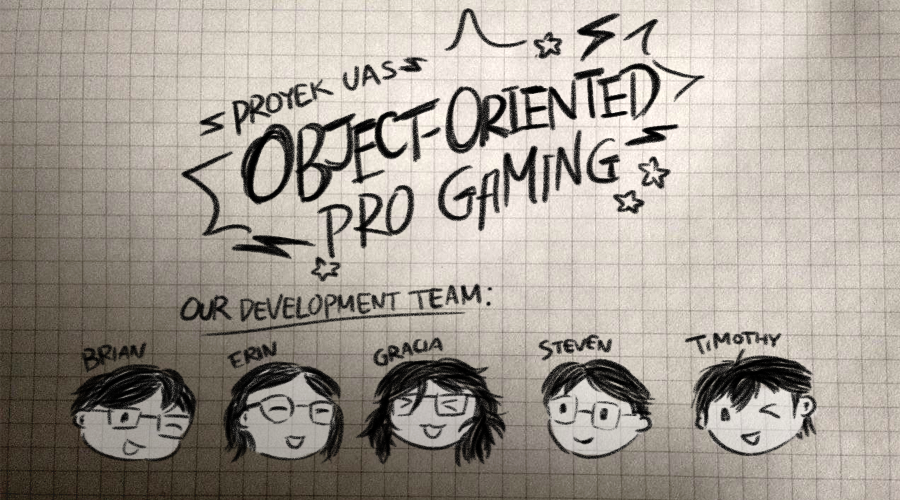 PROYEK UAS
OBJECT-ORIENTED
PRO GAMING
OUR DEVELOPMENT TEAM:
BRIAN ERIN GRACIA STEVEN TIMOTHY